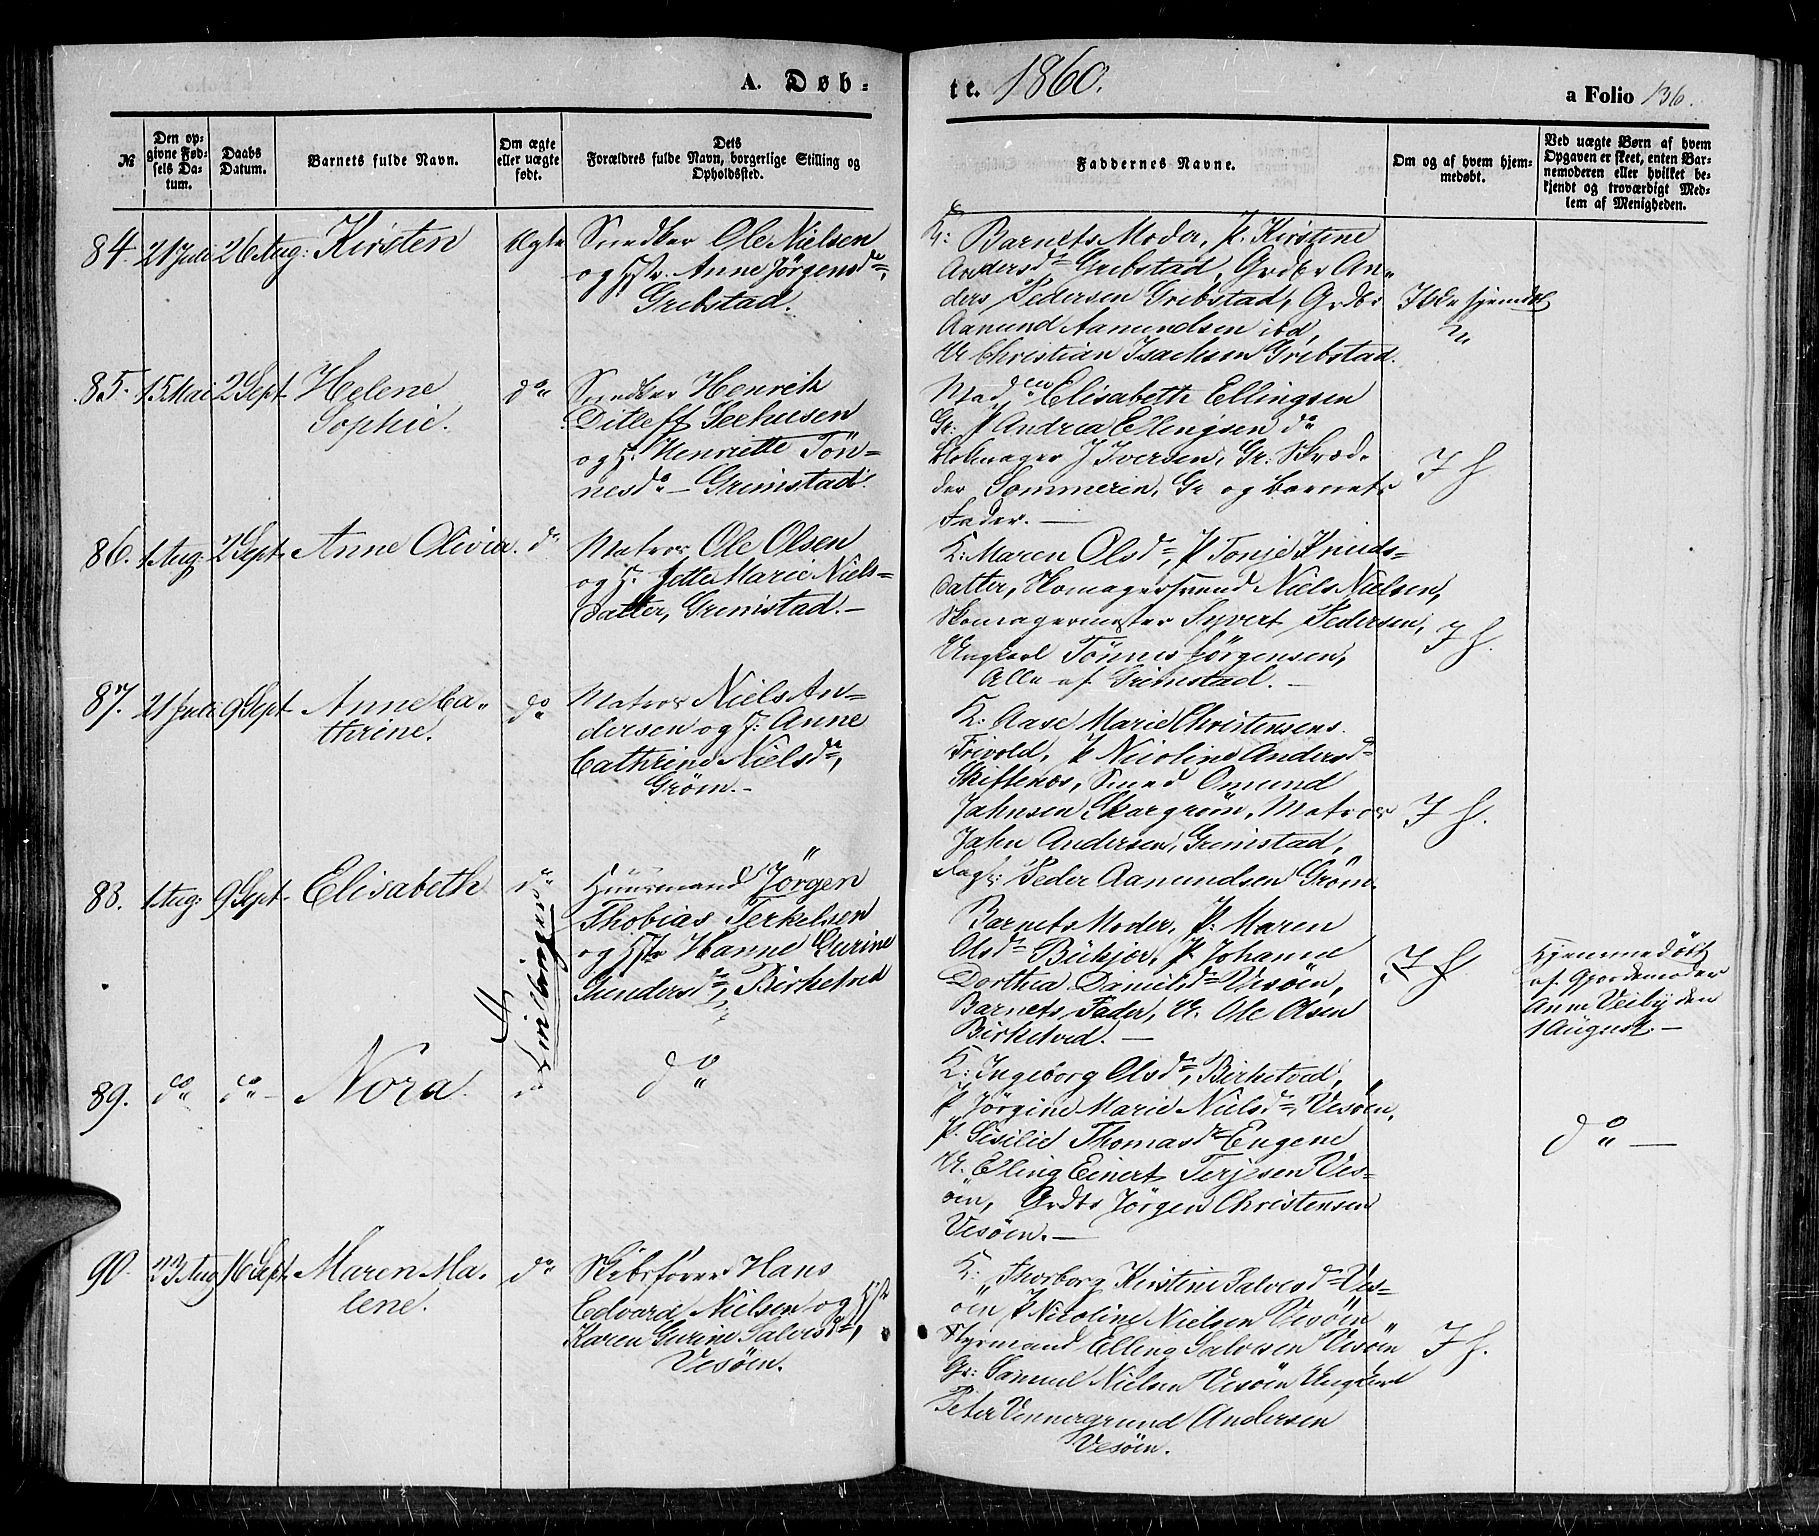 A. Døb-
te. 1860.
a Folio 136.
№
Den op-
givne Fød-
sels Da-
tum.
Daabs
Datum.
Barnets fulde Navn.
Om ægte
eller uægte
født.
Dets
Forældres fulde Navn, borgerlige Stilling og
Opholdssted.
Faddernes Navne.
Om og af hvem hjem-
medøbt.
Ved uægte Børn af hvem
Opgaven er skeet, enten Bar-
nemoderen eller hvilket be-
kjendt og troværdigt Med-
lem af Menigheden.
84. 21 Juli 26 Aug: Kirsten Ægte
Snedker Ole Nielsen
og Hstr. Anne Jörgensdr,
Grebstad.
K: Barnets Moder, P. Kirstine
Andersdr Grebstad, Grdbr An-
ders Pedersen Grebstad, Grdbr
Aamund Aamundsen ibd,
U Christian Isachsen Grebstad.
Ikke hjemdøbt
85. 15 Mai 2 Sept. Helene
Sophie. do
Snedker Henrik
Ditleff Seehusen
og H. Henriette Tön-
nesdr - Grimstad.
Madmen Elisabeth Ellingsen
Gr: P Andrea Ellingsen do
Skomager J Iversen, Gr: Skræd-
der Sommerin, Gr og barnets
Fader. -
I H
86. 1 Aug: 2 Sept. Anne Olivia. do
Matros Ole Olsen
og H. Jette Marie Niels-
datter, Grimstad. -
K: Maren Olsdr, P Tonje Knuds-
datter, Skomagersvend Niels Nielsen,
Skomagermester Syvert Pedersen,
Ungkarl Tönnes Jörgensen,
Alle af Grimstad. -
I H.
87. 21 Juli 9 Sept. Anne Ca-
thrine. do
Matros Niels An-
dersen og H: Anne
Cathrine Nielsdr,
Grøm. -
K: Aase Marie Christensens
Frivold, P Nicoline Andersdr
Skiftenes, Smed Omund
Jahnsen Skargrøm, Matros
Jahn Andersen, Grimstad,
Dagl: Peder Aamundsen Grøm.
I H.
88. 1 Aug: 9 Sept. Elisabeth do
Huusmand Jörgen
Thobias Terkelsen
og Hstr Hanne Gurine
Gundersdr, Birketved
Tvillinger
Barnets Moder, P: Maren
Olsdr Bükjær, P. Johanne
Dorthea Danielsdr Vesöen,
Barnets Fader, U. Ole Olsen
Birketved. -
I H
Hjemmedöbt
af Gjordemoder
Anne Veiby den
1 August. -
89. do do - Nora. do
do
K: Ingeborg Olsdr, Birketved,
P Jörgine Marie Nielsdr, Vesöen,
P. Sisilie Thomasdr Eugene
U. Elling Einert Terjesen Ves-
öen, Grdbr Jörgen Christensen
Vesöen. -
do -
90. 23 Aug 16 Sept. Maren Ma-
lene. do
Skibsfører Hans
Edvard Nielsen og Hstr
Karen Gurine Salvesdr,
Vesöen.
K: Thorborg Kirstine Salvesdr Ves-
öen P Nicoline Nielsen Vesöen
Styrmand Elling Salvesen Vesöen
Gr: Samuel Nielsen Vesöen Ungkarl
Peter Vennergrund Andersen
Vesöen.
I H.